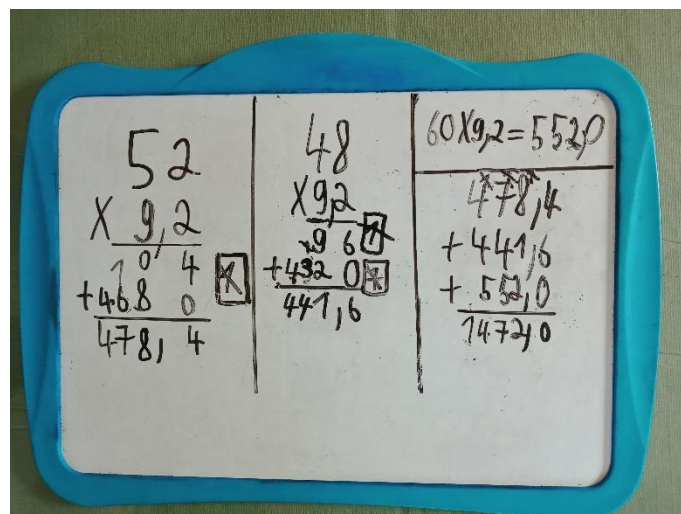 52
X 9,2
104
+4680
478,4
48
X9,2
+96
+4320
441,6
60X9,2=552,0
478,4
+441,6
+552,0
1472,0